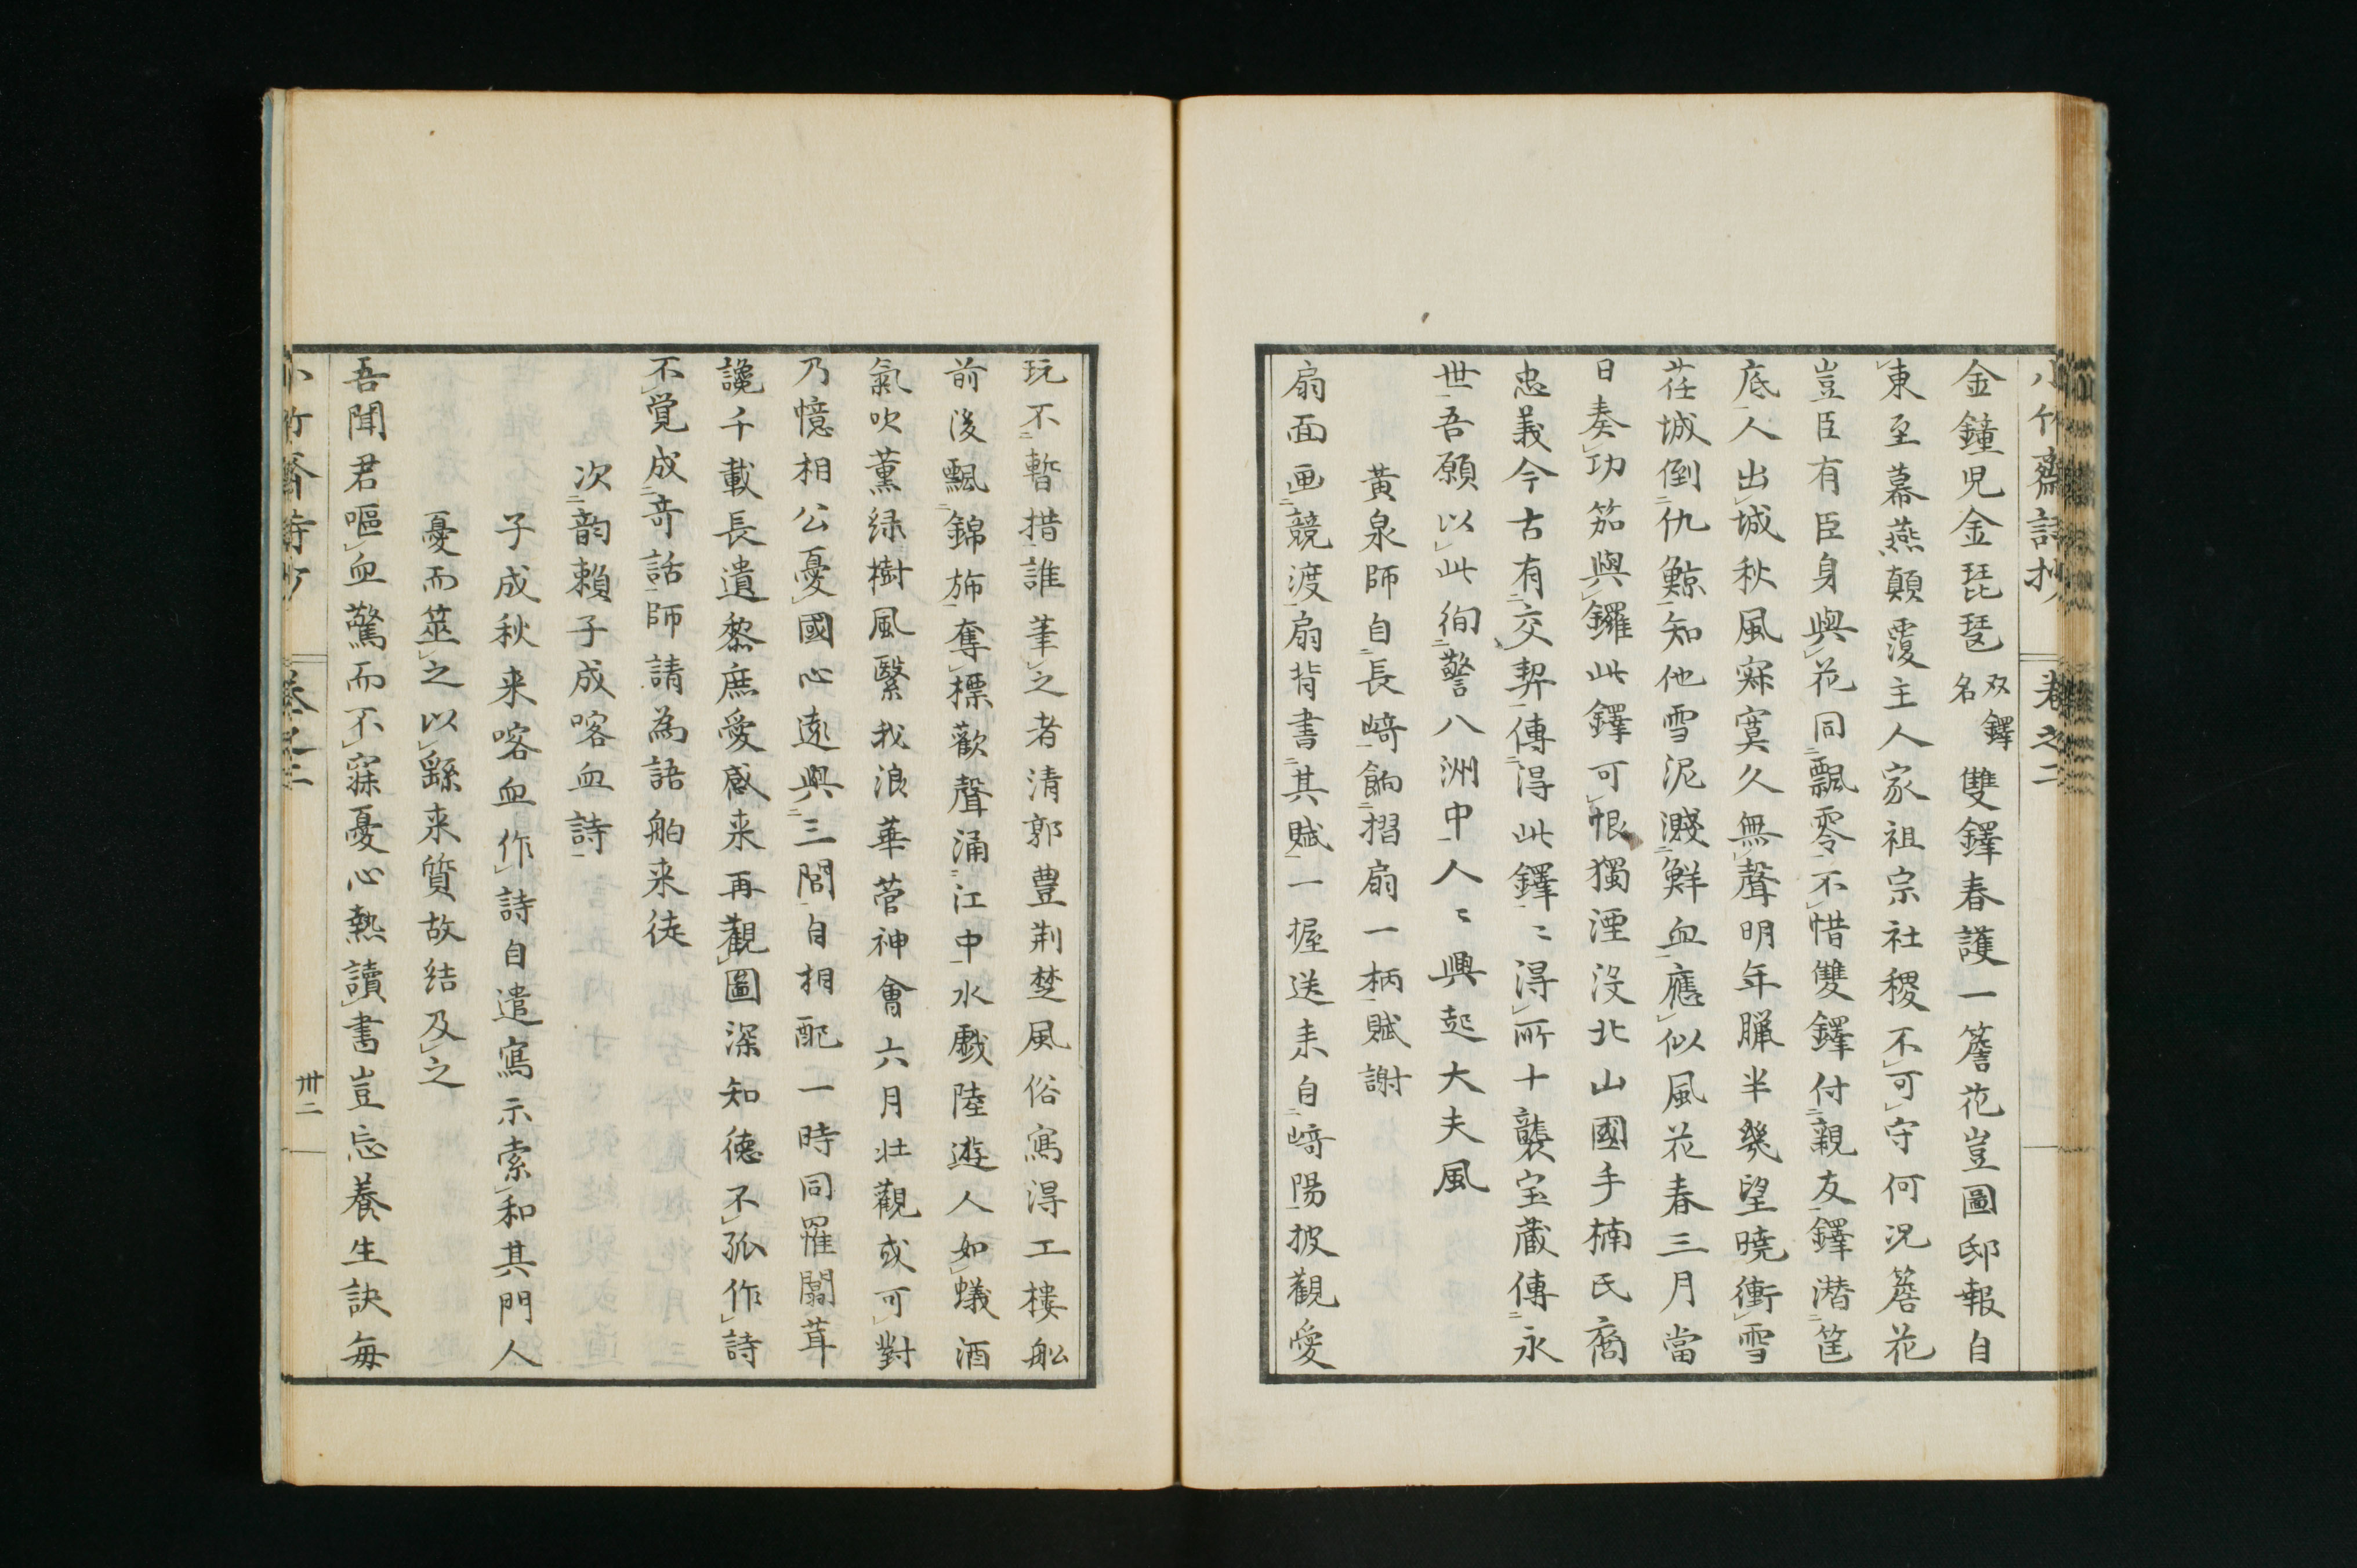 小竹齋詩抄 卷之二
金鐘児金琵琶双鐸名雙鐸春護一簷花豈圖邸報自
東至幕燕顛覆主人家祖宗社稷不可守何況簷花
豈臣有臣身與花同飄零不惜雙鐸付親友鐸潜筐
底人出城秋風寂寞久無聲明年臘半幾望曉衝雪
茌城倒仇鯨知他雪泥濺鮮血應似風花春三月當
日奏功笳與鑼此鐸可恨獨湮没北山國手楠氏裔
忠義今古有交契傳淂此鐸〻淂所十襲宝蔵傳永
世吾願以此徇警八洲中人〻興起大夫風
黄泉師自長﨑餉摺扇一柄賦謝
扇面画競渡扇背書其賦一握送耒自﨑陽披觀愛
玩不暫措誰筆之者清郭豊荆楚風俗寫淂工樓舩
前後飄錦斾奪標歡聲涌江中水戱陸遊人如蟻酒
氣吹薰緑樹風繄我浪華菅神會六月壮觀或可對
乃憶相公憂國心遠與三閭自相配一時同罹闒茸
讒千載長遺黎庶愛感来再觀圖深知德不孤作詩
不覚成竒話師請為語舶来徒
次韵賴子成喀血詩
子成秋来喀血作詩自遣寫示索和其門人
憂而筮之以繇来質故結及之
吾聞君嘔血驚而不寐憂心熱讀書豈忘養生訣毎
小竹齋詩抄 卷之二 卅二